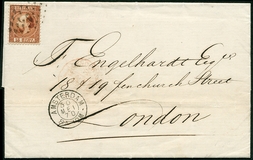 T. Engelhardt Esqre
18 & 19 fenchurch Street
London
AMSTERDAM